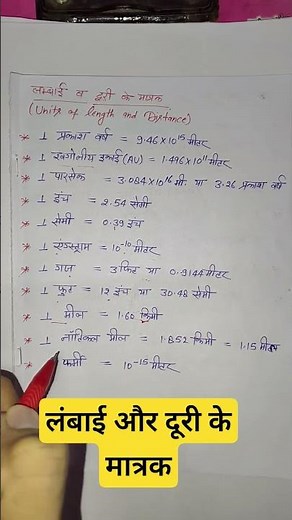 लम्बाई व दूरी के मात्रक
(Units of length and Distance)
* 1 प्रकाश वर्ष = 9.46×10¹⁵ मीटर
* 1 खगोलीय इकाई (AU) = 1.496×10¹¹ मीटर
* 1 पारसेक = 3.084×10¹⁶ मी. या 3.26 प्रकाश वर्ष
* 1 इंच = 2.54 सेमी
* 1 सेमी = 0.39 इंच
* 1 एंग्स्ट्राम = 10⁻¹⁰ मीटर
* 1 गज = 3 फिट या 0.9144 मीटर
* 1 फुट = 12 इंच या 30.48 सेमी
* 1 मील = 1.60 किमी
* 1 नॉटिकल मील = 1.852 किमी = 1.15 मील
* फर्मी = 10⁻¹⁵ मीटर
लंबाई और दूरी के
मात्रक